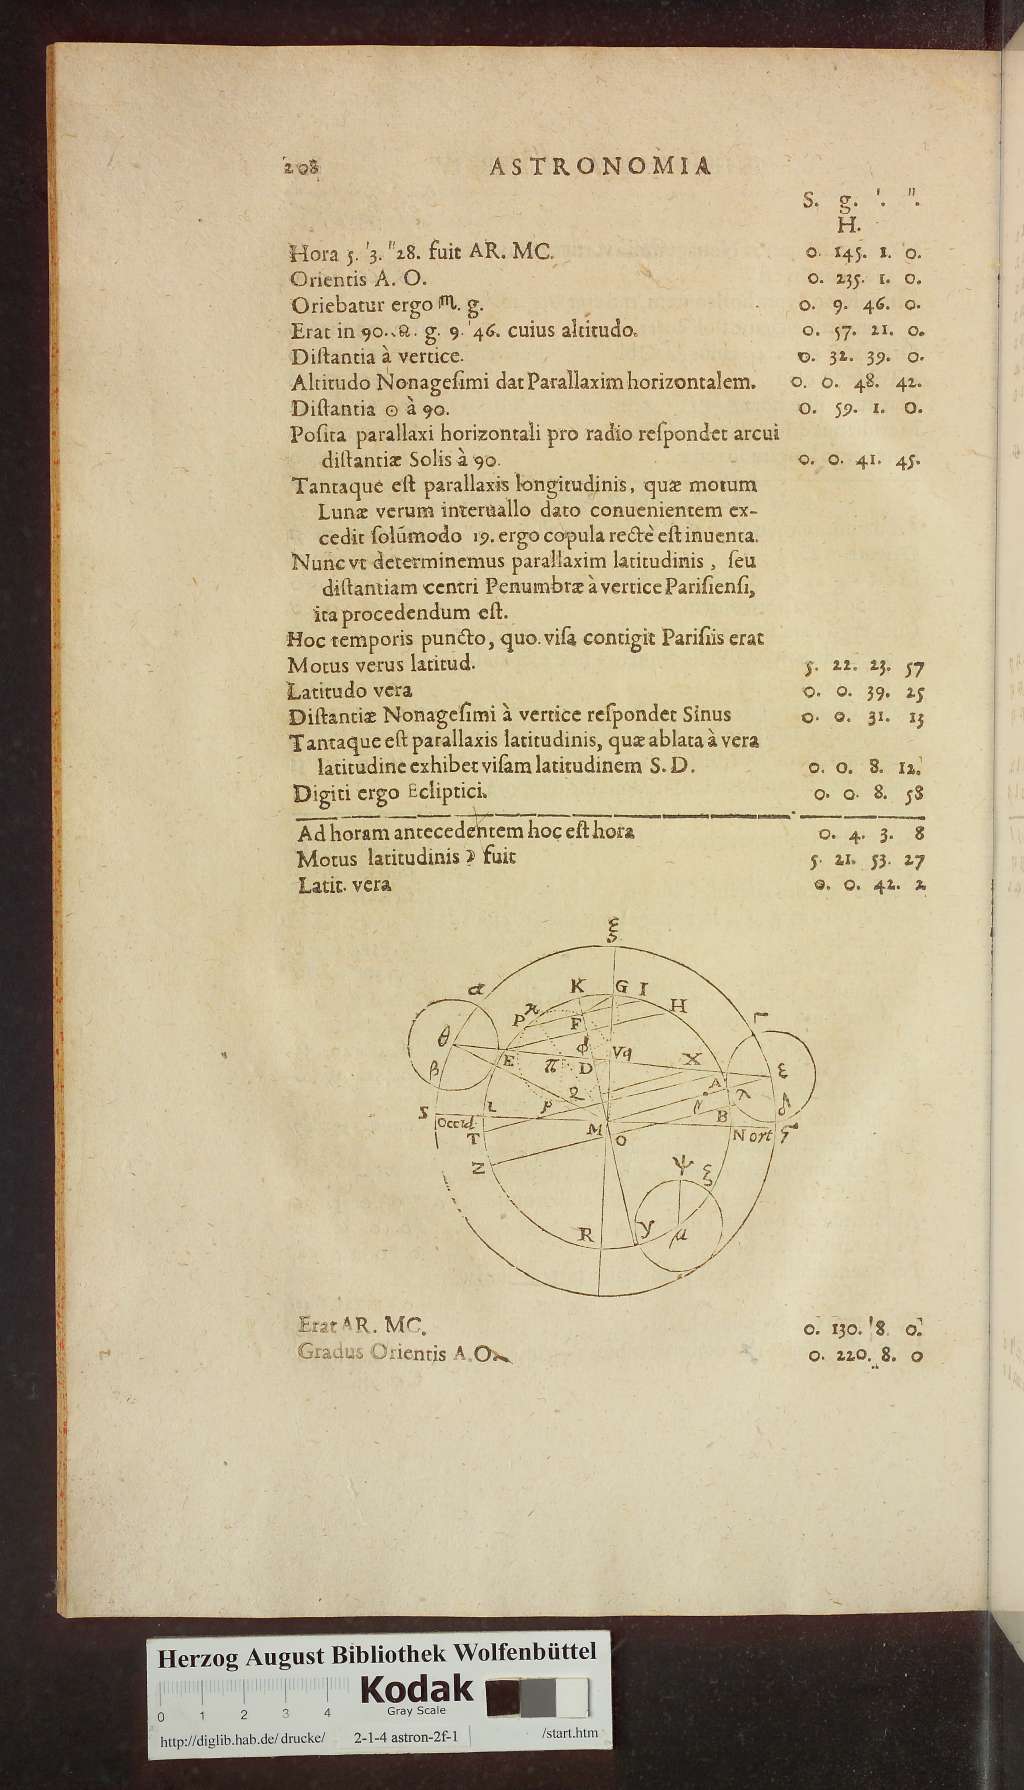 208 ASTRONOMIA
S. g. '. ".
H.
Hora 5. '3. "28. fuit AR. MC. 0. 145. 1. 0.
Orientis A. O. 0. 235. 1. 0.
Oriebatur ergo ♏. g. 0. 9. 46. 0.
Erat in 90. ♌. g. 9. '46. cuius altitudo. 0. 57. 21. 0.
Diſtantia à vertice. 0. 32. 39. 0.
Altitudo Nonageſimi dat Parallaxim horizontalem. 0. 0. 48. 42.
Diſtantia ☉ à 90. 0. 59. 1. 0.
Poſita parallaxi horizontali pro radio reſpondet arcui
diſtantiæ Solis à 90. 0. 0. 41. 45.
Tantaque eſt parallaxis longitudinis, quæ motum
Lunæ verum interuallo dato conuenientem ex-
cedit ſolũmodo 19. ergo copula rectè eſt inuenta.
Nunc vt determinemus parallaxim latitudinis, ſeu
diſtantiam centri Penumbræ à vertice Pariſienſi,
ita procedendum eſt.
Hoc temporis puncto, quo viſa contigit Pariſiis erat
Motus verus latitud. 5. 22. 23. 57
Latitudo vera 0. 0. 39. 25
Diſtantiæ Nonageſimi à vertice reſpondet Sinus 0. 0. 31. 13
Tantaque eſt parallaxis latitudinis, quæ ablata à vera
latitudine exhibet viſam latitudinem S. D. 0. 0. 8. 12.
Digiti ergo Ecliptici. 0. 0. 8. 58
Ad horam antecedentem hoc eſt hora 0. 4. 3. 8
Motus latitudinis ☽ fuit 5. 21. 53. 27
Latit. vera 0. 0. 42. 2
ξ
α K G I H
P F
θ E ϕ V q X ε
β π D A λ δ
S L ρ B
Occid. M O Nort
T
Z
Ψ ξ
R y μ
Erat AR. MC. 0. 130. '8. 0.
Gradus Orientis A. O. 0. 220. 8. 0
Herzog August Bibliothek Wolfenbüttel
Kodak
Gray Scale
0 1 2 3 4
http://diglib.hab.de/drucke/ 2-1-4 astron-2f-1 /start.htm